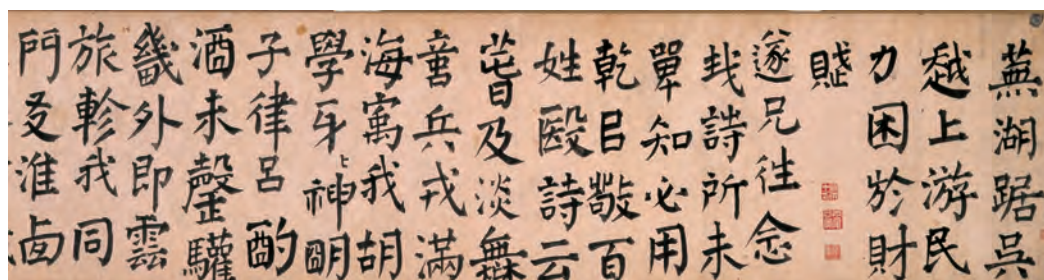 蕪湖踞吳
越上游民
力困於財
賦
遂兄往念
哉詩所未
單知必用
乾㠯敬百
姓毆詩云
及淡無
兵戎滿
海寓我胡
學牙神明
子律呂酌
酒未罄驩
畿外即雲
旅軫我同
門及淮鹵